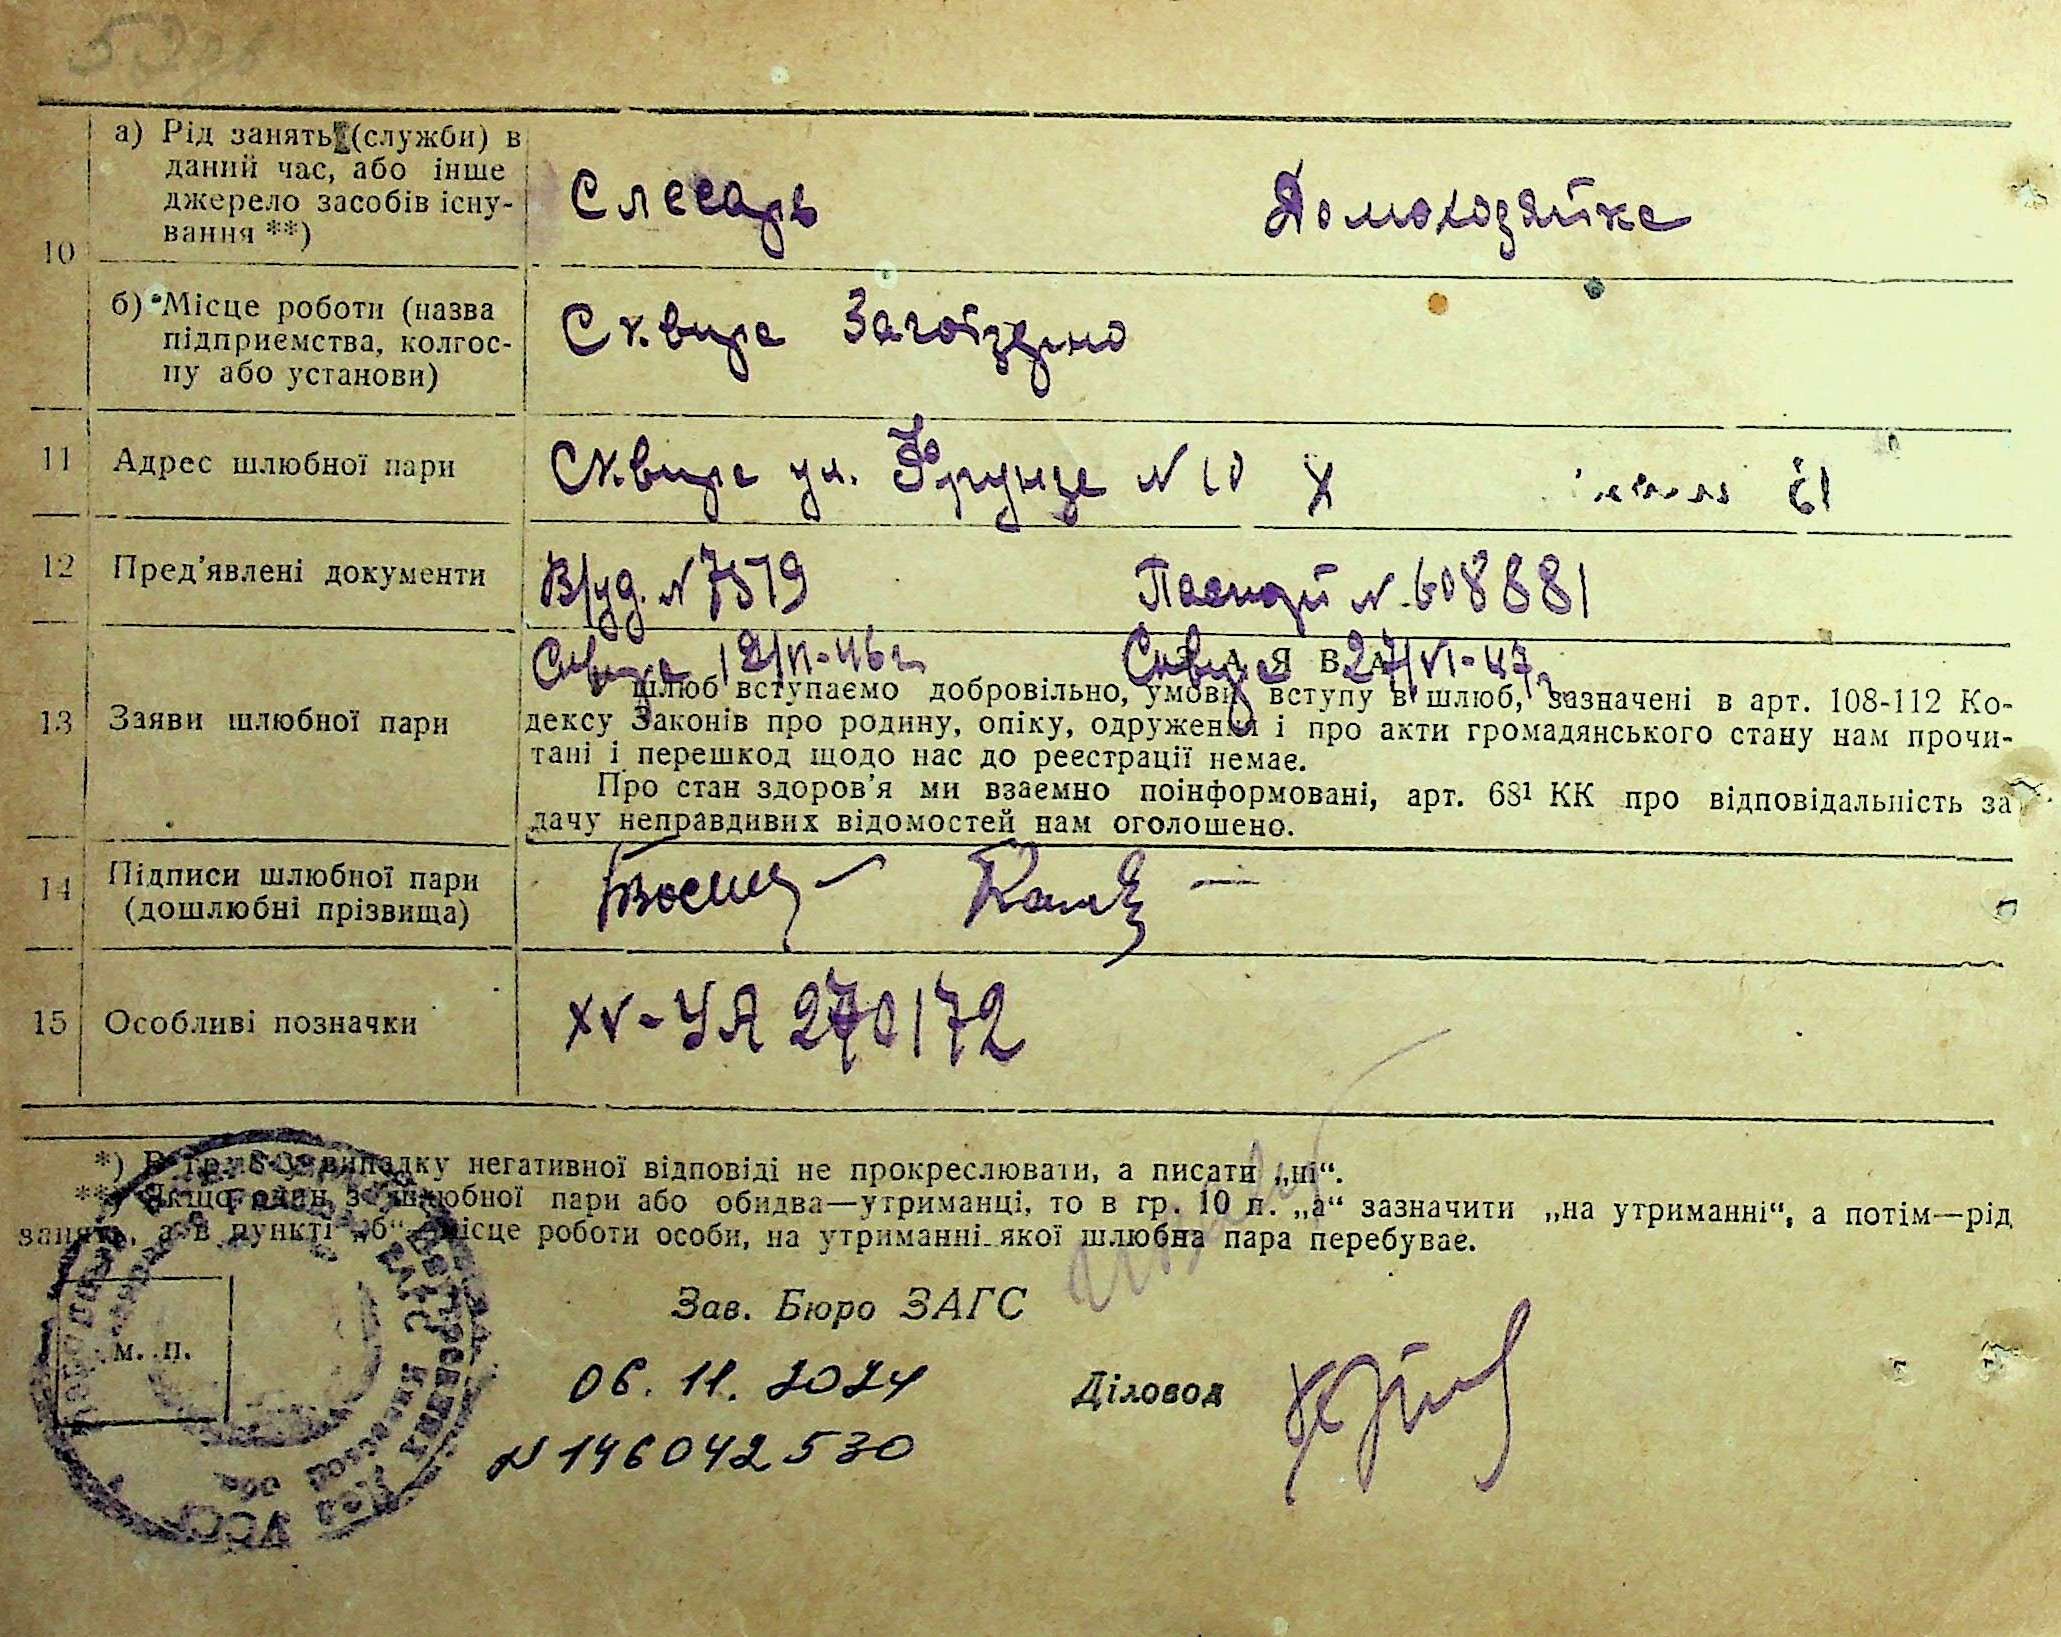 10
а) Рід занять (служби) в
даний час, або інше
джерело засобів існу-
вання **)
Слесарь
Домохозяйка
б) Місце роботи (назва
підприємства, колгос-
пу або установи)
Сквира Заготзерно
11
Адрес шлюбної пари
Сквира ул. Фрунзе N 10
61
12
Пред'явлені документи
В/уд. N 7579
Паспорт N. 608881
Сквира 12/VI-46 г.
Сквира 27/VI-47
13
Заяви шлюбної пари
ЗАЯВА
шлюб вступаємо добровільно, умови вступу в шлюб, зазначені в арт. 108-112 Ко-
дексу Законів про родину, опіку, одруження і про акти громадянського стану нам прочи-
тані і перешкод щодо нас до реєстрації немає.
Про стан здоров'я ми взаємно поінформовані, арт. 68¹ КК про відповідальність за
дачу неправдивих відомостей нам оголошено.
14
Підписи шлюбної пари
(дошлюбні прізвища)
15
Особливі позначки
XV-УЯ 270172
*) В гр. 8-9 у випадку негативної відповіді не прокреслювати, а писати „ні“.
**) Якщо один з шлюбної пари або обидва—утриманці, то в гр. 10 п. „а“ зазначити „на утриманні“, а потім—рід
занять, а в пункті „б“ місце роботи особи, на утриманні якої шлюбна пара перебуває.
Зав. Бюро ЗАГС
м. п.
06.11.2024
Діловод
N 146042530